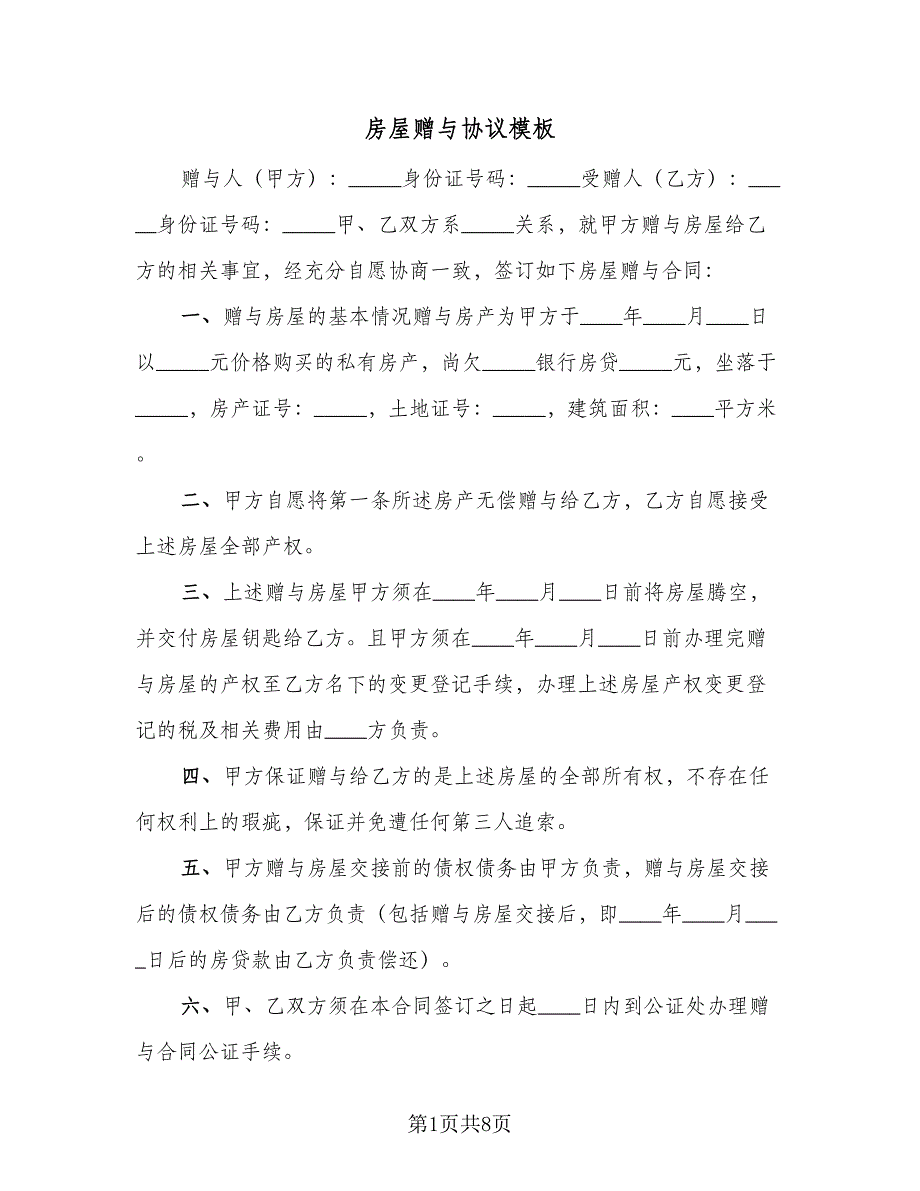 房屋赠与协议模板
赠与人（甲方）：_____身份证号码：_____受赠人（乙方）：___
__身份证号码：_____甲、乙双方系_____关系，就甲方赠与房屋给乙
方的相关事宜，经充分自愿协商一致，签订如下房屋赠与合同：
一、赠与房屋的基本情况赠与房产为甲方于____年____月____日
以_____元价格购买的私有房产，尚欠_____银行房贷_____元，坐落于
_____，房产证号：_____，土地证号：_____，建筑面积：____平方米
。
二、甲方自愿将第一条所述房产无偿赠与给乙方，乙方自愿接受
上述房屋全部产权。
三、上述赠与房屋甲方须在____年____月____日前将房屋腾空，
并交付房屋钥匙给乙方。且甲方须在____年____月____日前办理完赠
与房屋的产权至乙方名下的变更登记手续，办理上述房屋产权变更登
记的税及相关费用由____方负责。
四、甲方保证赠与给乙方的是上述房屋的全部所有权，不存在任
何权利上的瑕疵，保证并免遭任何第三人追索。
五、甲方赠与房屋交接前的债权债务由甲方负责，赠与房屋交接
后的债权债务由乙方负责（包括赠与房屋交接后，即____年____月___
_日后的房贷款由乙方负责偿还）。
六、甲、乙双方须在本合同签订之日起____日内到公证处办理赠
与合同公证手续。
第1页共8页